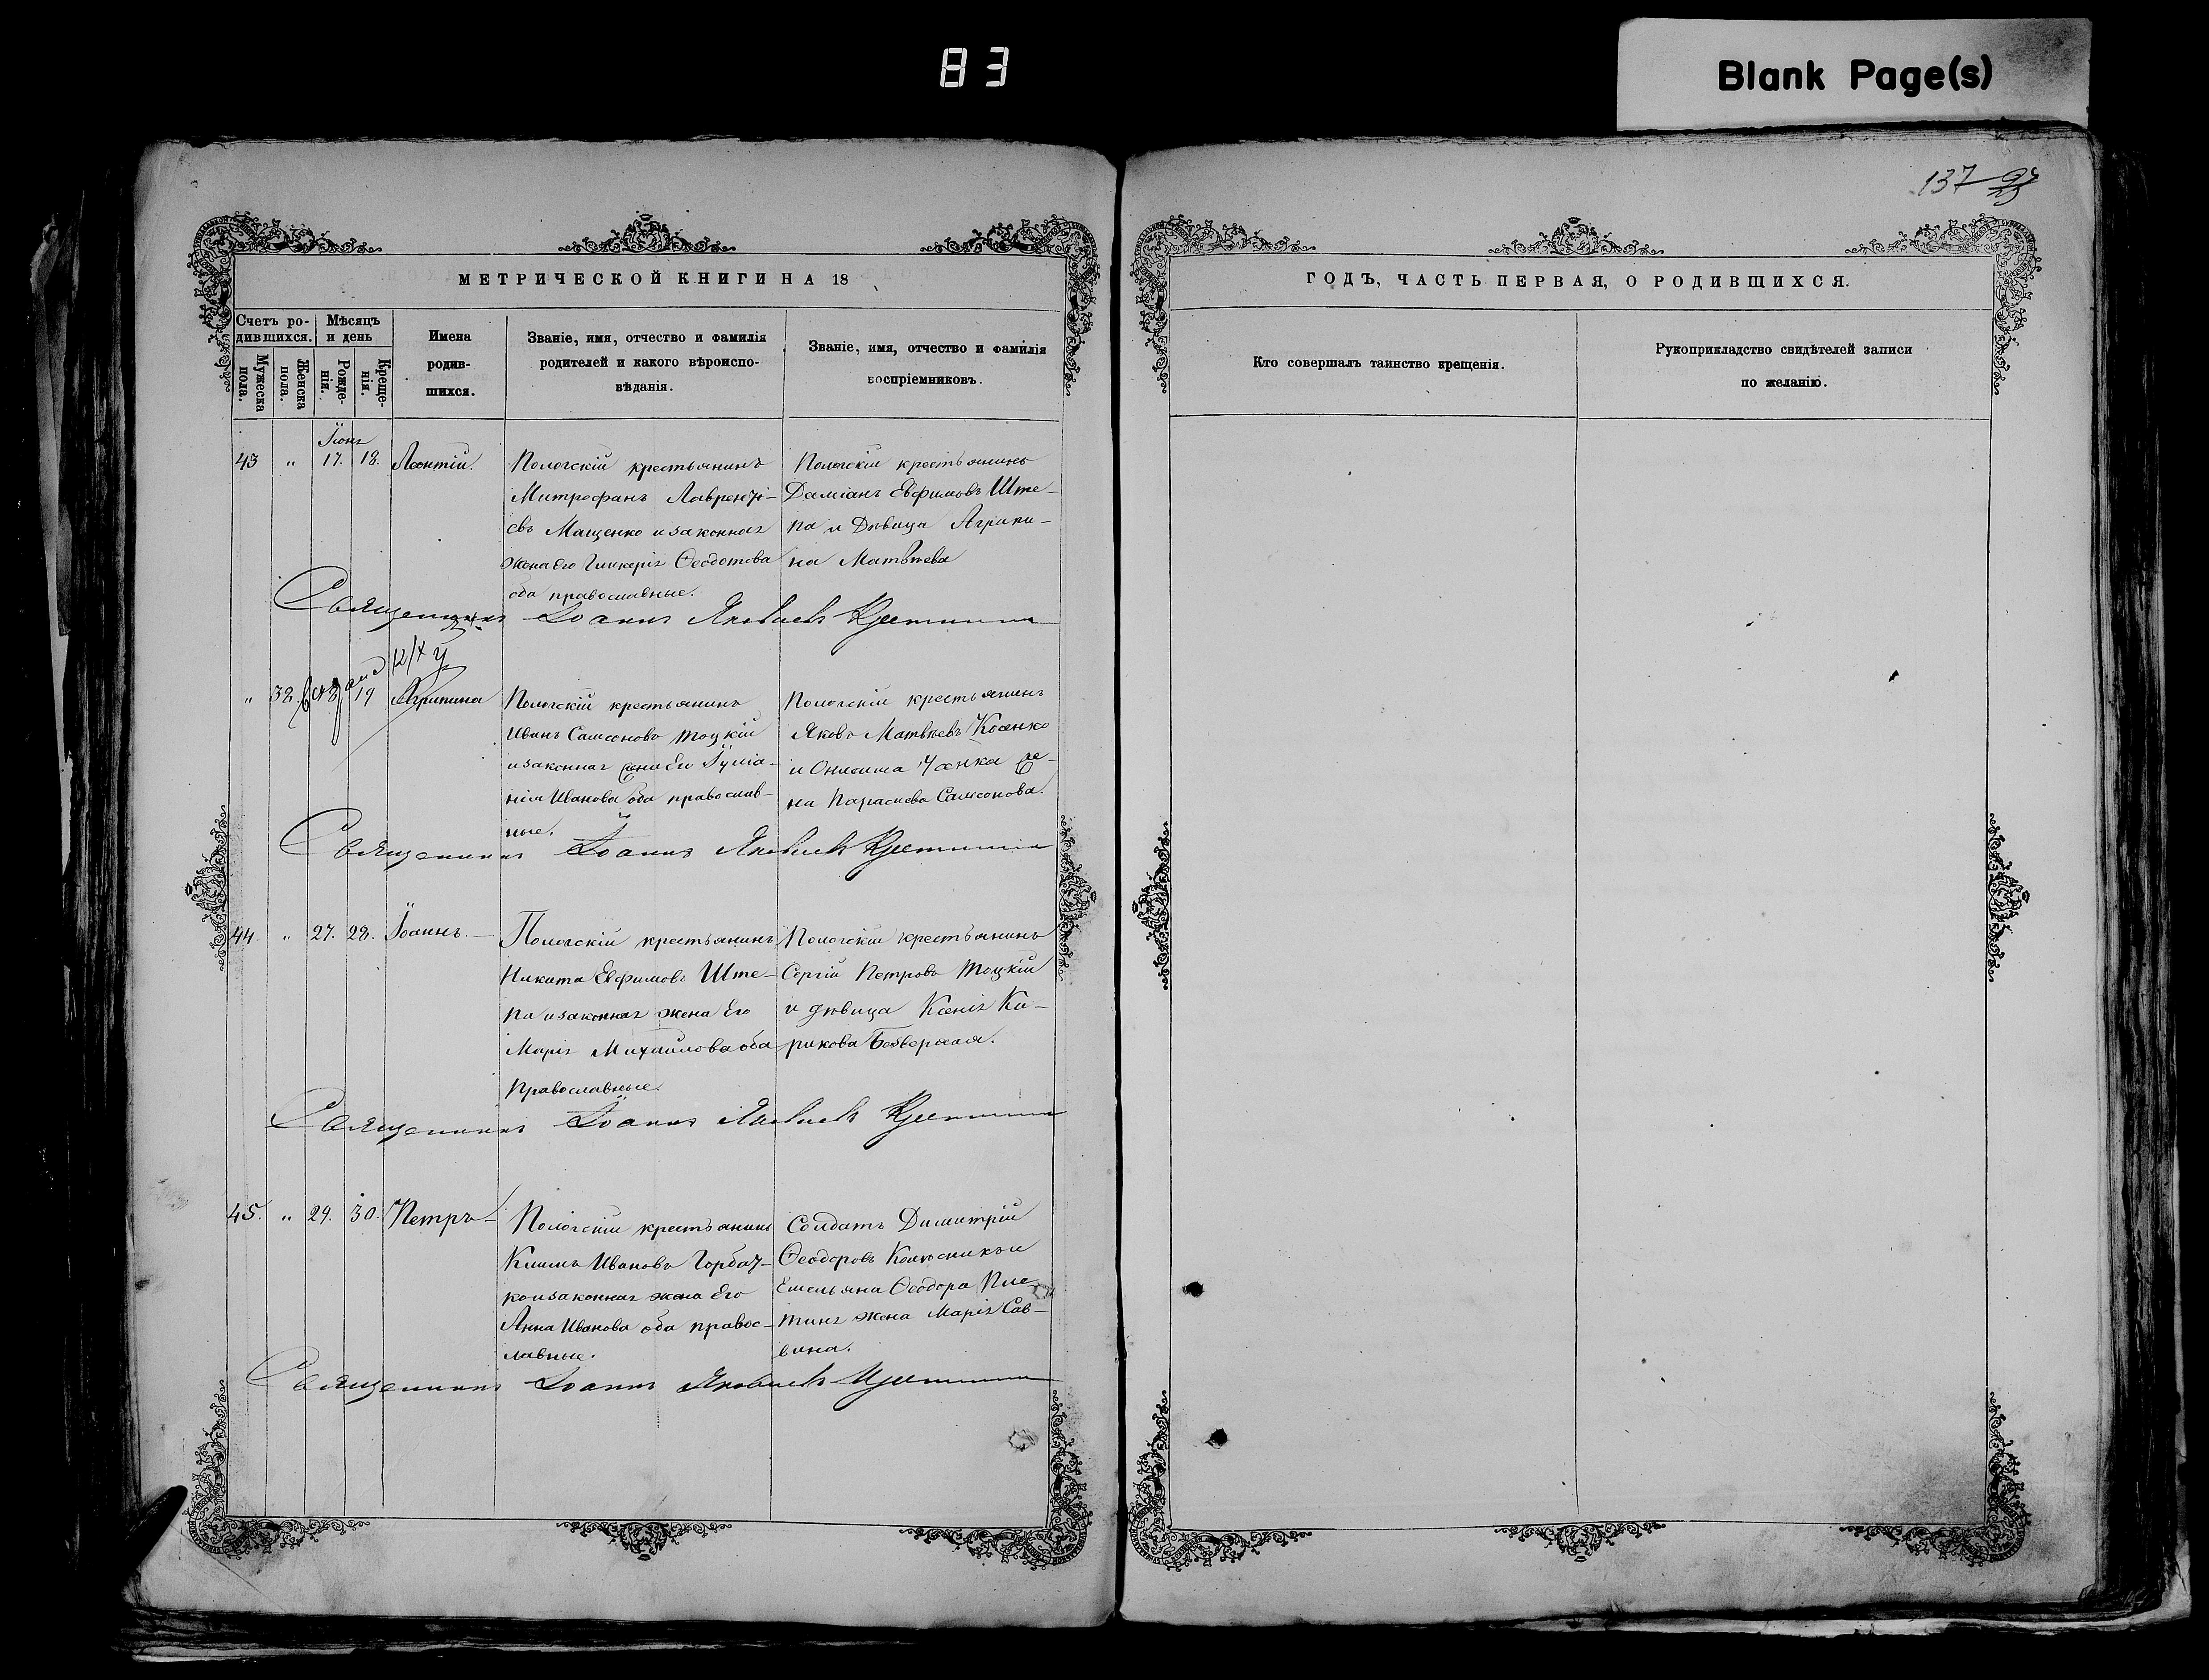 83
Blank Page(s)
137 97
МЕТРИЧЕСКОЙ КНИГИ НА 18
Счетъ ро-
дившихся.
Мѣсяцъ
и день
Мужеска пола.
Женска пола.
Рожде-
нія.
Креще-
нія.
Имена
родив-
шихся.
Званіе, имя, отчество и фамилія
родителей и какого вѣроиспо-
вѣданія.
Званіе, имя, отчество и фамилія
воспріемниковъ.
Іюнь
43 " 17. 18. Леонтій.
Пологскій крестьянинъ
Митрофанъ Лавренті-
евъ Мащенко и законная
жена его Гликерія Ѳеодотова
оба православные.
Пологскій крестьянинъ
Даміанъ Евфимовъ Ште-
па и Дѣвица Агрипи-
на Матвѣева
Священникъ Іоаннъ Яковлевъ
" 32. 18 19 Агрипина
Пологскій крестьянинъ
Иванъ Самсоновъ Тоцкій
и законная жена его Іуліа-
нія Иванова оба православ-
ные.
Пологскій крестьянинъ
Яковъ Матвѣевъ Косенко
и Онисима же-
на Параскева Самсонова.
Священникъ Іоаннъ Яковлевъ
44. " 27. 28. Іоаннъ.
Пологскій крестьянинъ
Никита Евфимовъ Ште-
па и законная жена Его
Марія Михайлова оба
Православные.
Пологскій крестьянинъ
Сергій Петровъ Тоцкій
и дѣвица Ксенія Ки-
рикова
Священникъ Іоаннъ Яковлевъ
45. " 29. 30. Петръ
Пологскій крестьянинъ
Климъ Ивановъ Горбач-
ко и законная жена Его
Анна Иванова оба правос-
лавные.
Солдатъ Димитрій
Ѳеодоровъ Колѣсникъ и
Емельяна Ѳеодора
жена Марія Сав-
вина.
Священникъ Іоаннъ Яковлевъ
ГОДЪ, ЧАСТЬ ПЕРВАЯ, О РОДИВШИХСЯ.
Кто совершалъ таинство крещенія.
Рукоприкладство свидѣтелей записи
по желанію.